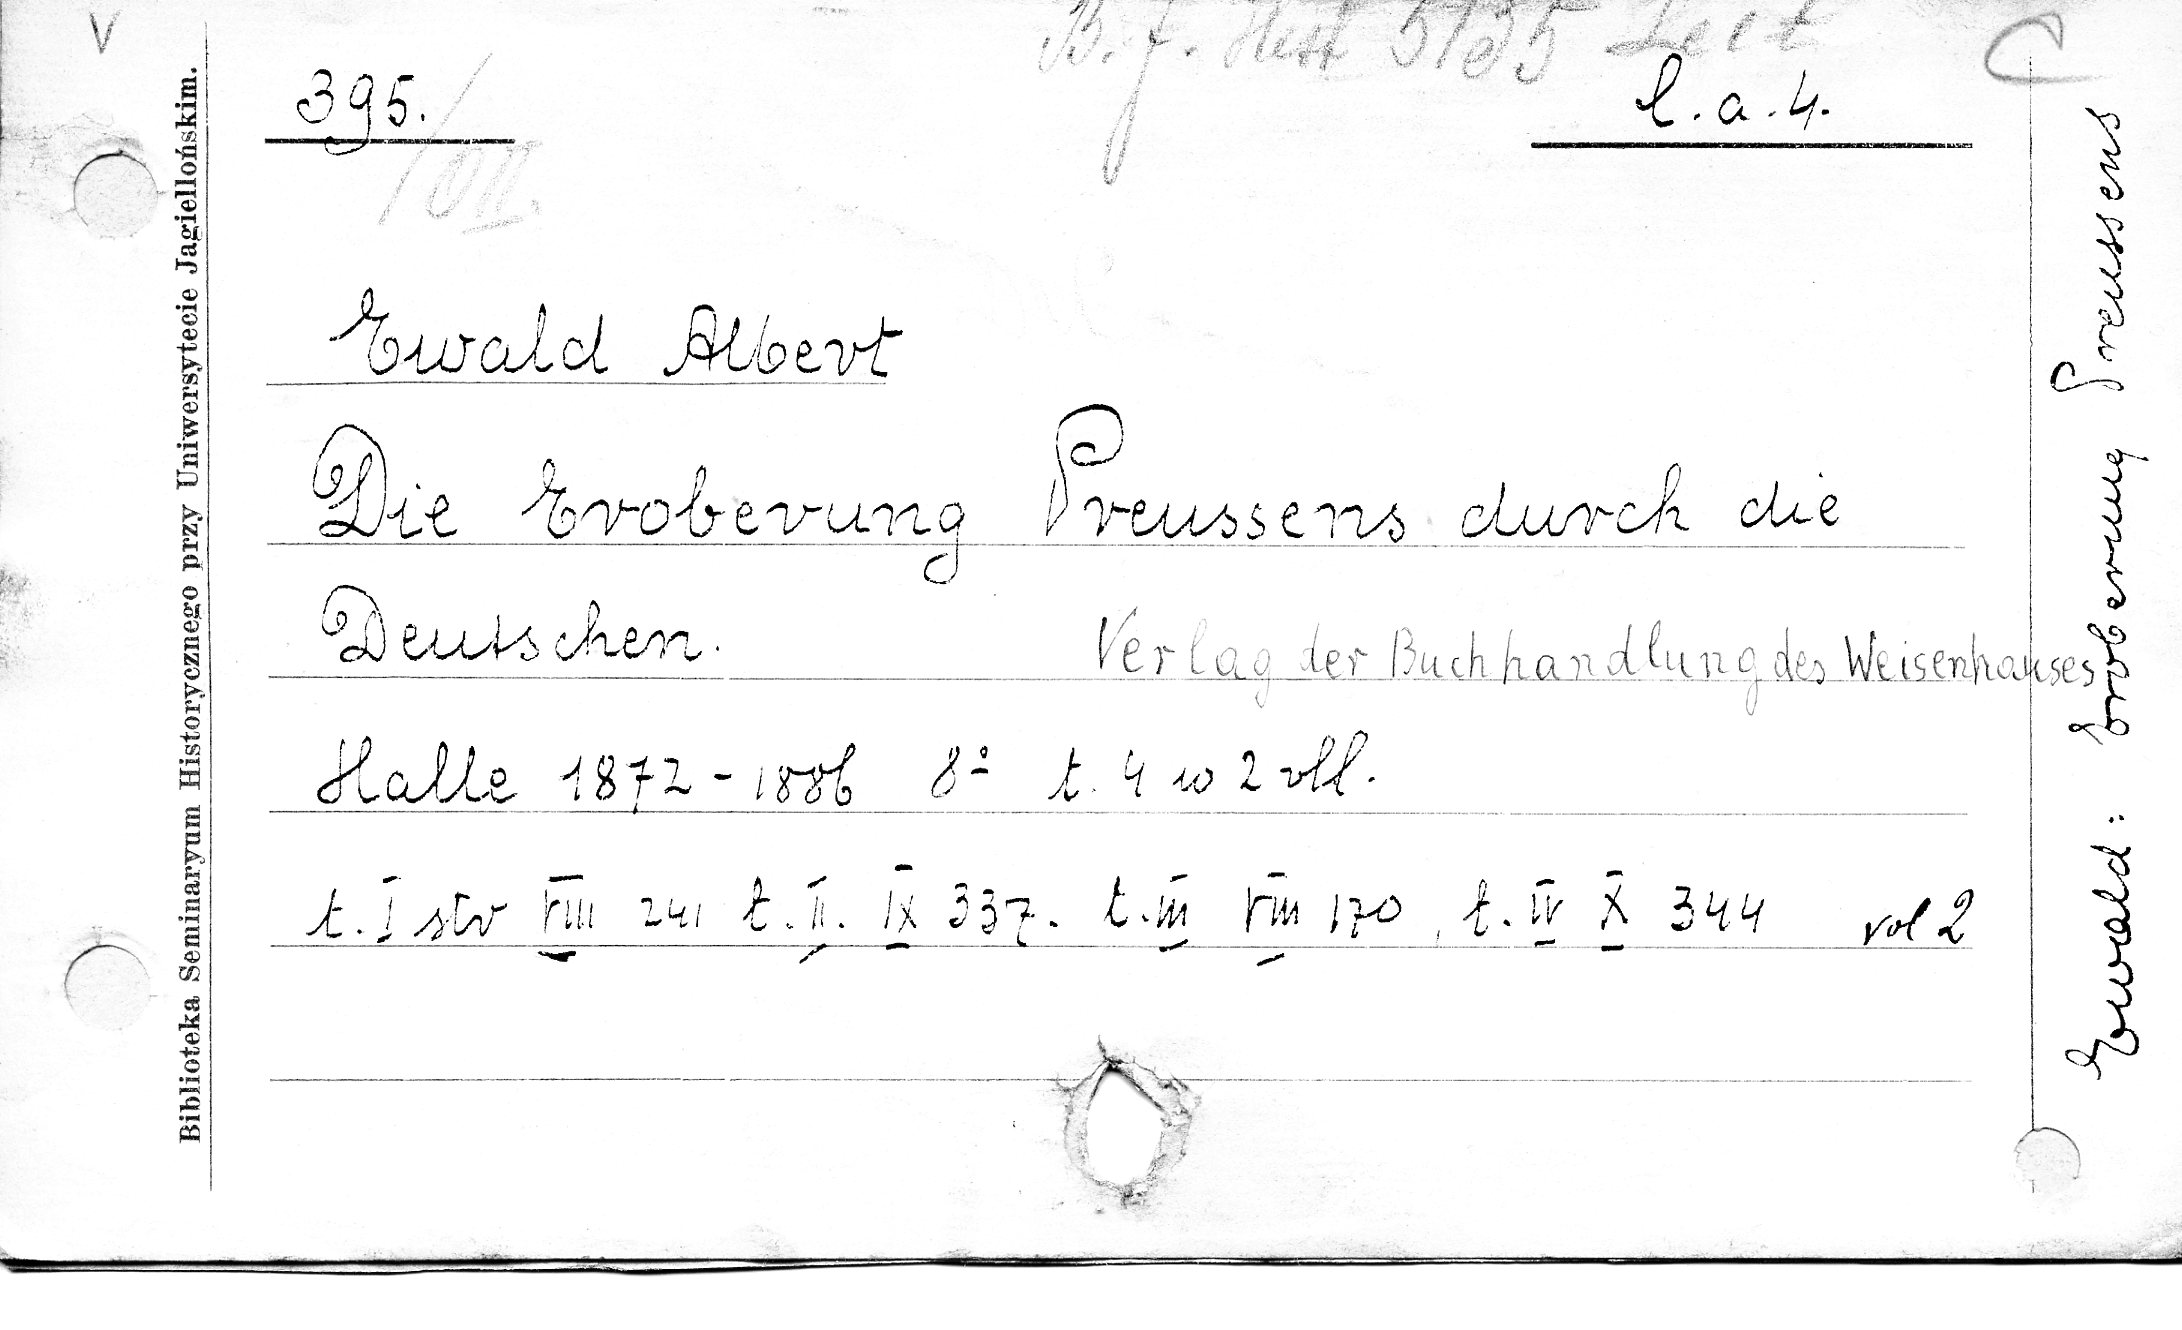 V
B. J. Hist 5135 Lect
C
395.
/VII.
l.a.4.
Ewald Albert
Die Eroberung Preussens durch die
Deutschen.
Verlag der Buchhandlung des Weisenhauses
Halle 1872-1886 8° t. 4 w 2 vll.
t. I str VIII 241 t. II. IX 337. t. III VIII 170, t. IV X 344 vol 2
Biblioteka Seminaryum Historycznego przy Uniwersytecie Jagiellońskim.
Ewald: Eroberung Preussens